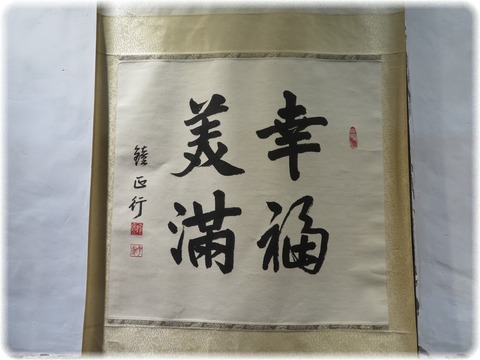 幸福
美滿
正行